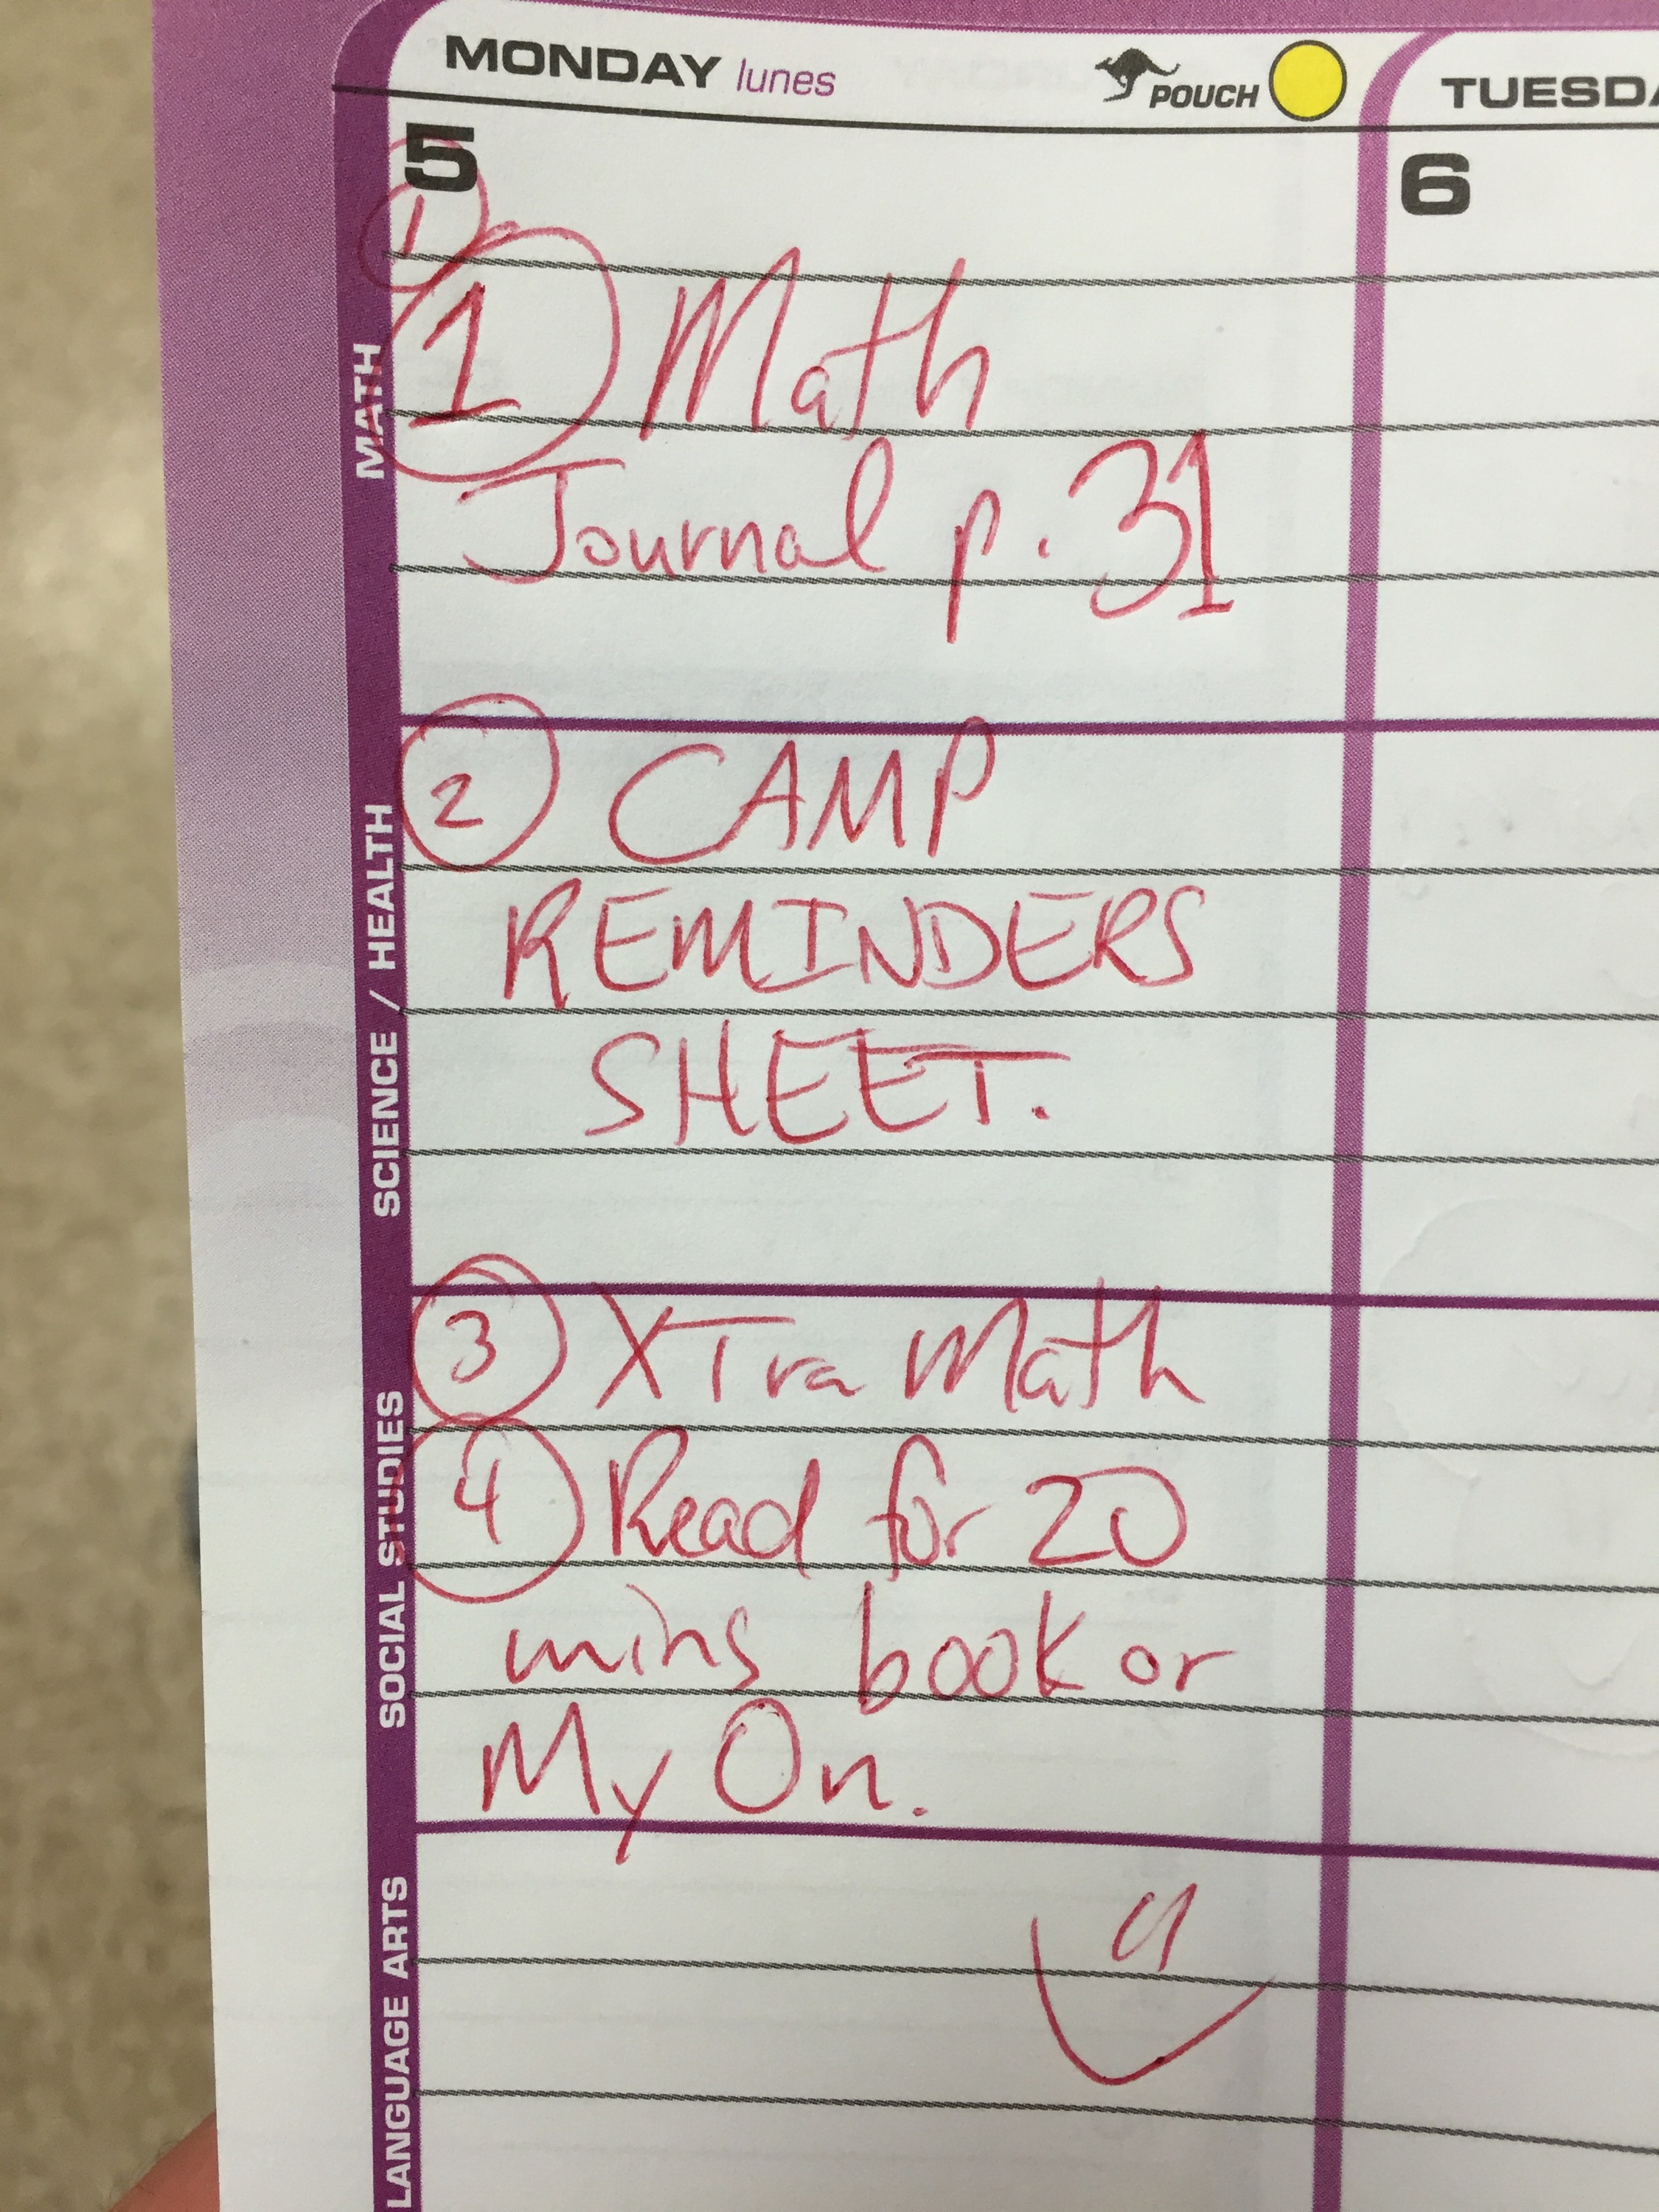 MONDAY lunes POUCH
TUESDA
5
6
1
1 Math
Journal p. 31
2 CAMP
REMINDERS
SHEET.
3 XTra Math
4 Read for 20
mins book or
My On.
MATH
SCIENCE / HEALTH
SOCIAL STUDIES
LANGUAGE ARTS